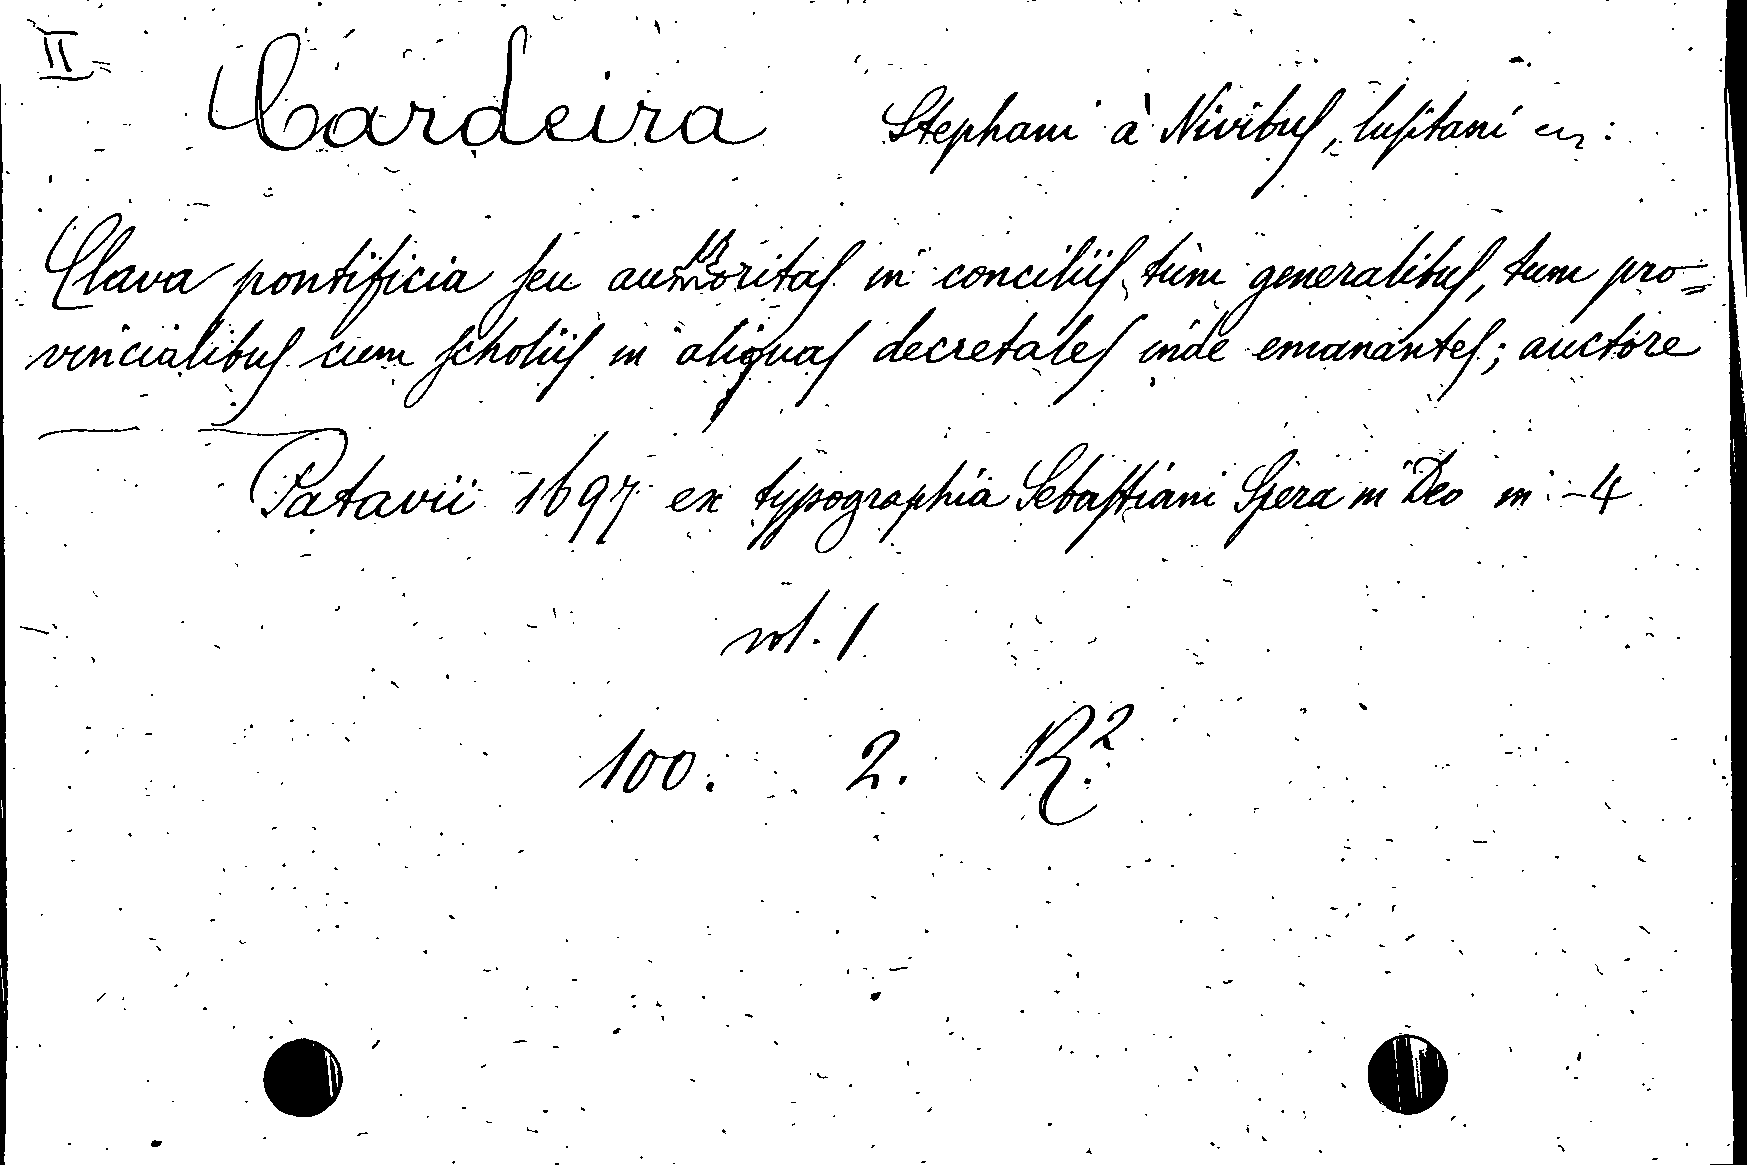 II
Cardeira Stephani à Nivibus, lusitani
Clava pontificia seu authoritas in conciliis tùm generalibus, tum pro=
vincialibus cum scholiis in aliquas decretales inde emanantes; auctore
Patavii 1697 ex typographia Sebastiani Spera in Deo in -4
vol. 1
100. 2. R.²